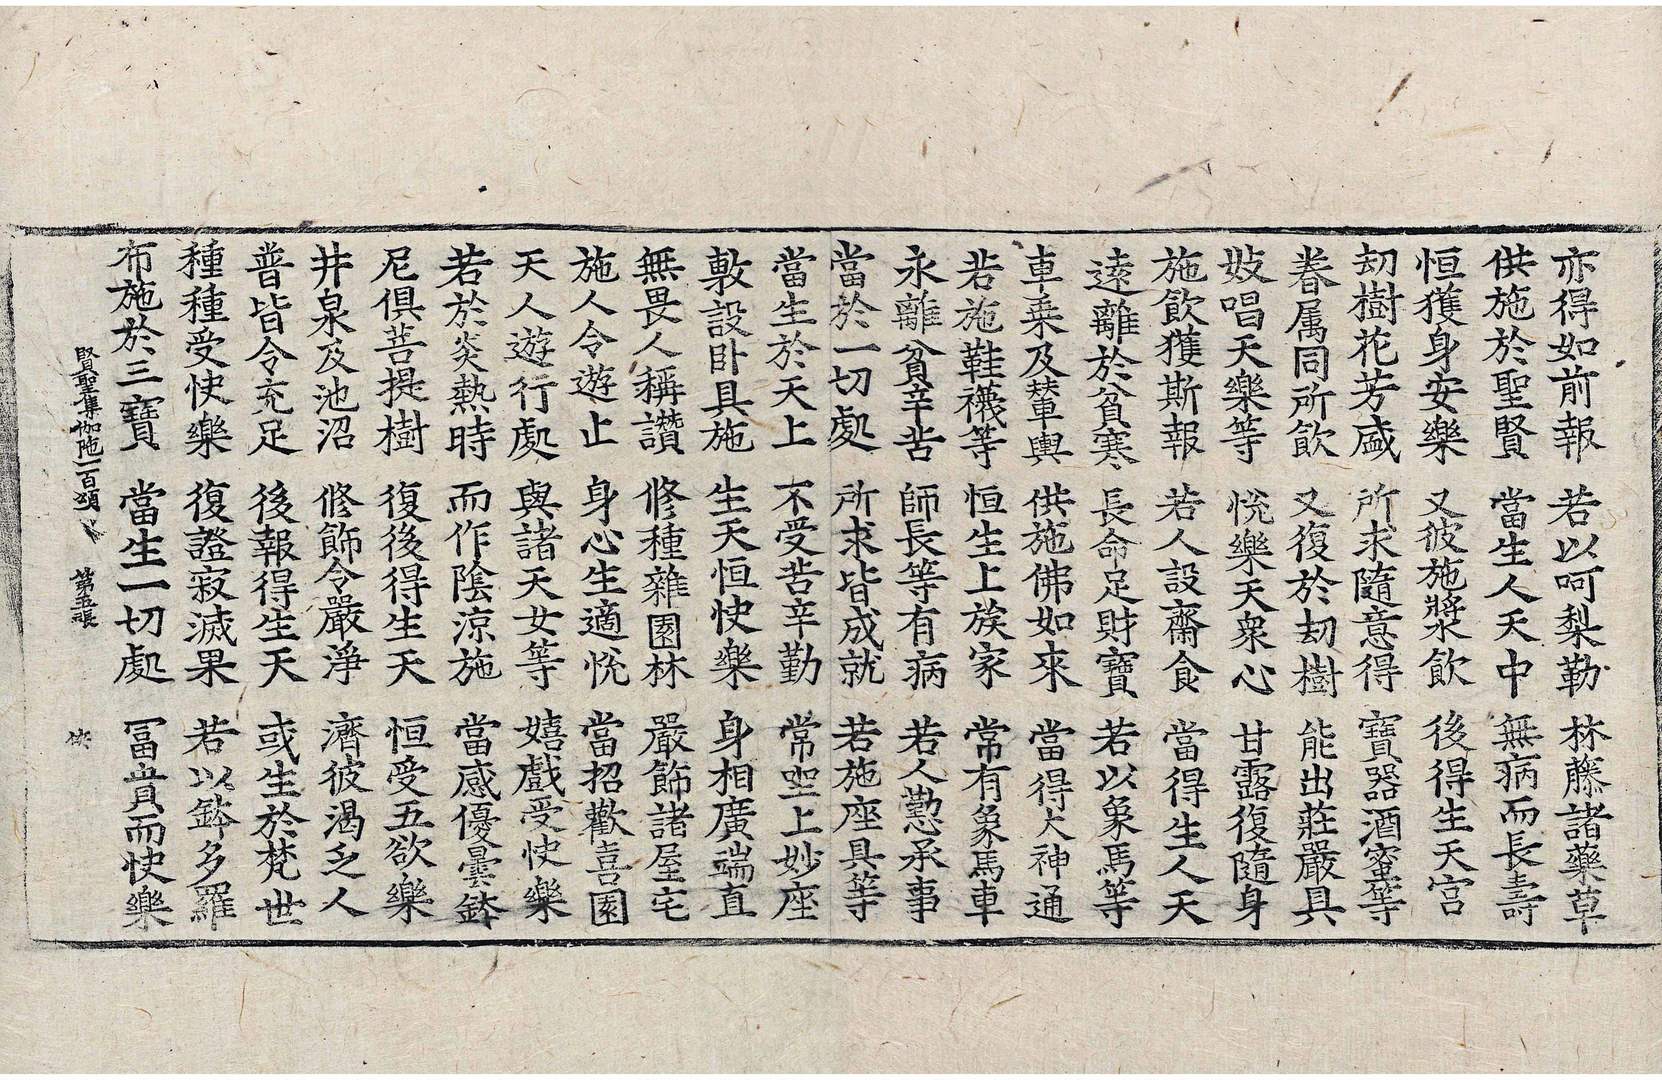 亦得如前報　若以呵梨勒　林藤諸藥草
供施於聖賢　當生人天中　無病而長壽
恒獲身安樂　又彼施漿飲　後得生天宮
刧樹花芳盛　所求隨意得　寶器酒蜜等
眷属同所飲　又復於刧樹　能出莊嚴具
妓唱天樂等　悅樂天衆心　甘露復隨身
施飲獲斯報　若人設齋食　當得生人天
遠離於貧寒　長命足財寶　若以象馬等
車乗及輦輿　供施佛如來　當得大神通
若施鞋襪等　恒生上族家　常有象馬車
永離貧辛苦　師長等有病　若人懃承事
當於一切處　所求皆成就　若施座具等
當生於天上　不受苦辛勤　常坐上妙座
敷設卧具施　生天恒快樂　身相廣端直
無畏人稱讚　修種雜園林　嚴飾諸屋宅
施人令遊止　身心生適悅　當招歡喜園
天人遊行處　與諸天女等　嬉戲受快樂
若於炎熱時　而作陰涼施　當感優曇鉢
尼俱菩提樹　復後得生天　恒受五欲樂
井泉及池沼　修飾令嚴淨　濟彼渴乏人
普皆令充足　後報得生天　或生於梵世
種種受快樂　復證寂滅果　若以鉢多羅
布施於三寶　當生一切處　冨貴而快樂
賢聖集伽陁一百頌　第五張　俠